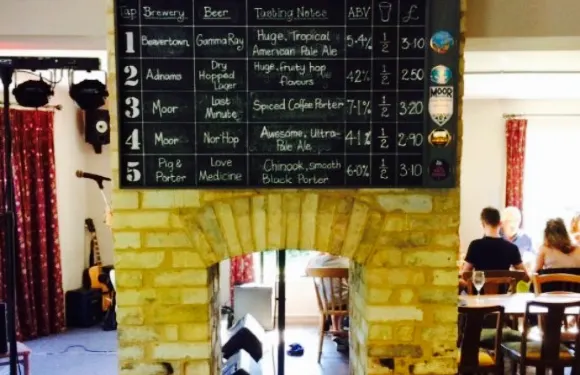 Tap Brewery Beer Tasting Notes ABV £
1 Beavertown Gamma Ray Huge, Tropical American Pale Ale 5.4% 1/2 3.10
2 Adnams Dry Hopped Lager Huge, fruity hop flavours 4.2% 1/2 2.50
3 Moor Last Minute Spiced Coffee Porter 7.1% 1/2 3.20
MOOR
4 Moor Nor'Hop Awesome, Ultra-Pale Ale 4.1% 1/2 2.90
5 Pig & Porter Love Medicine Chinook, smooth Black Porter 6.0% 1/2 3.10